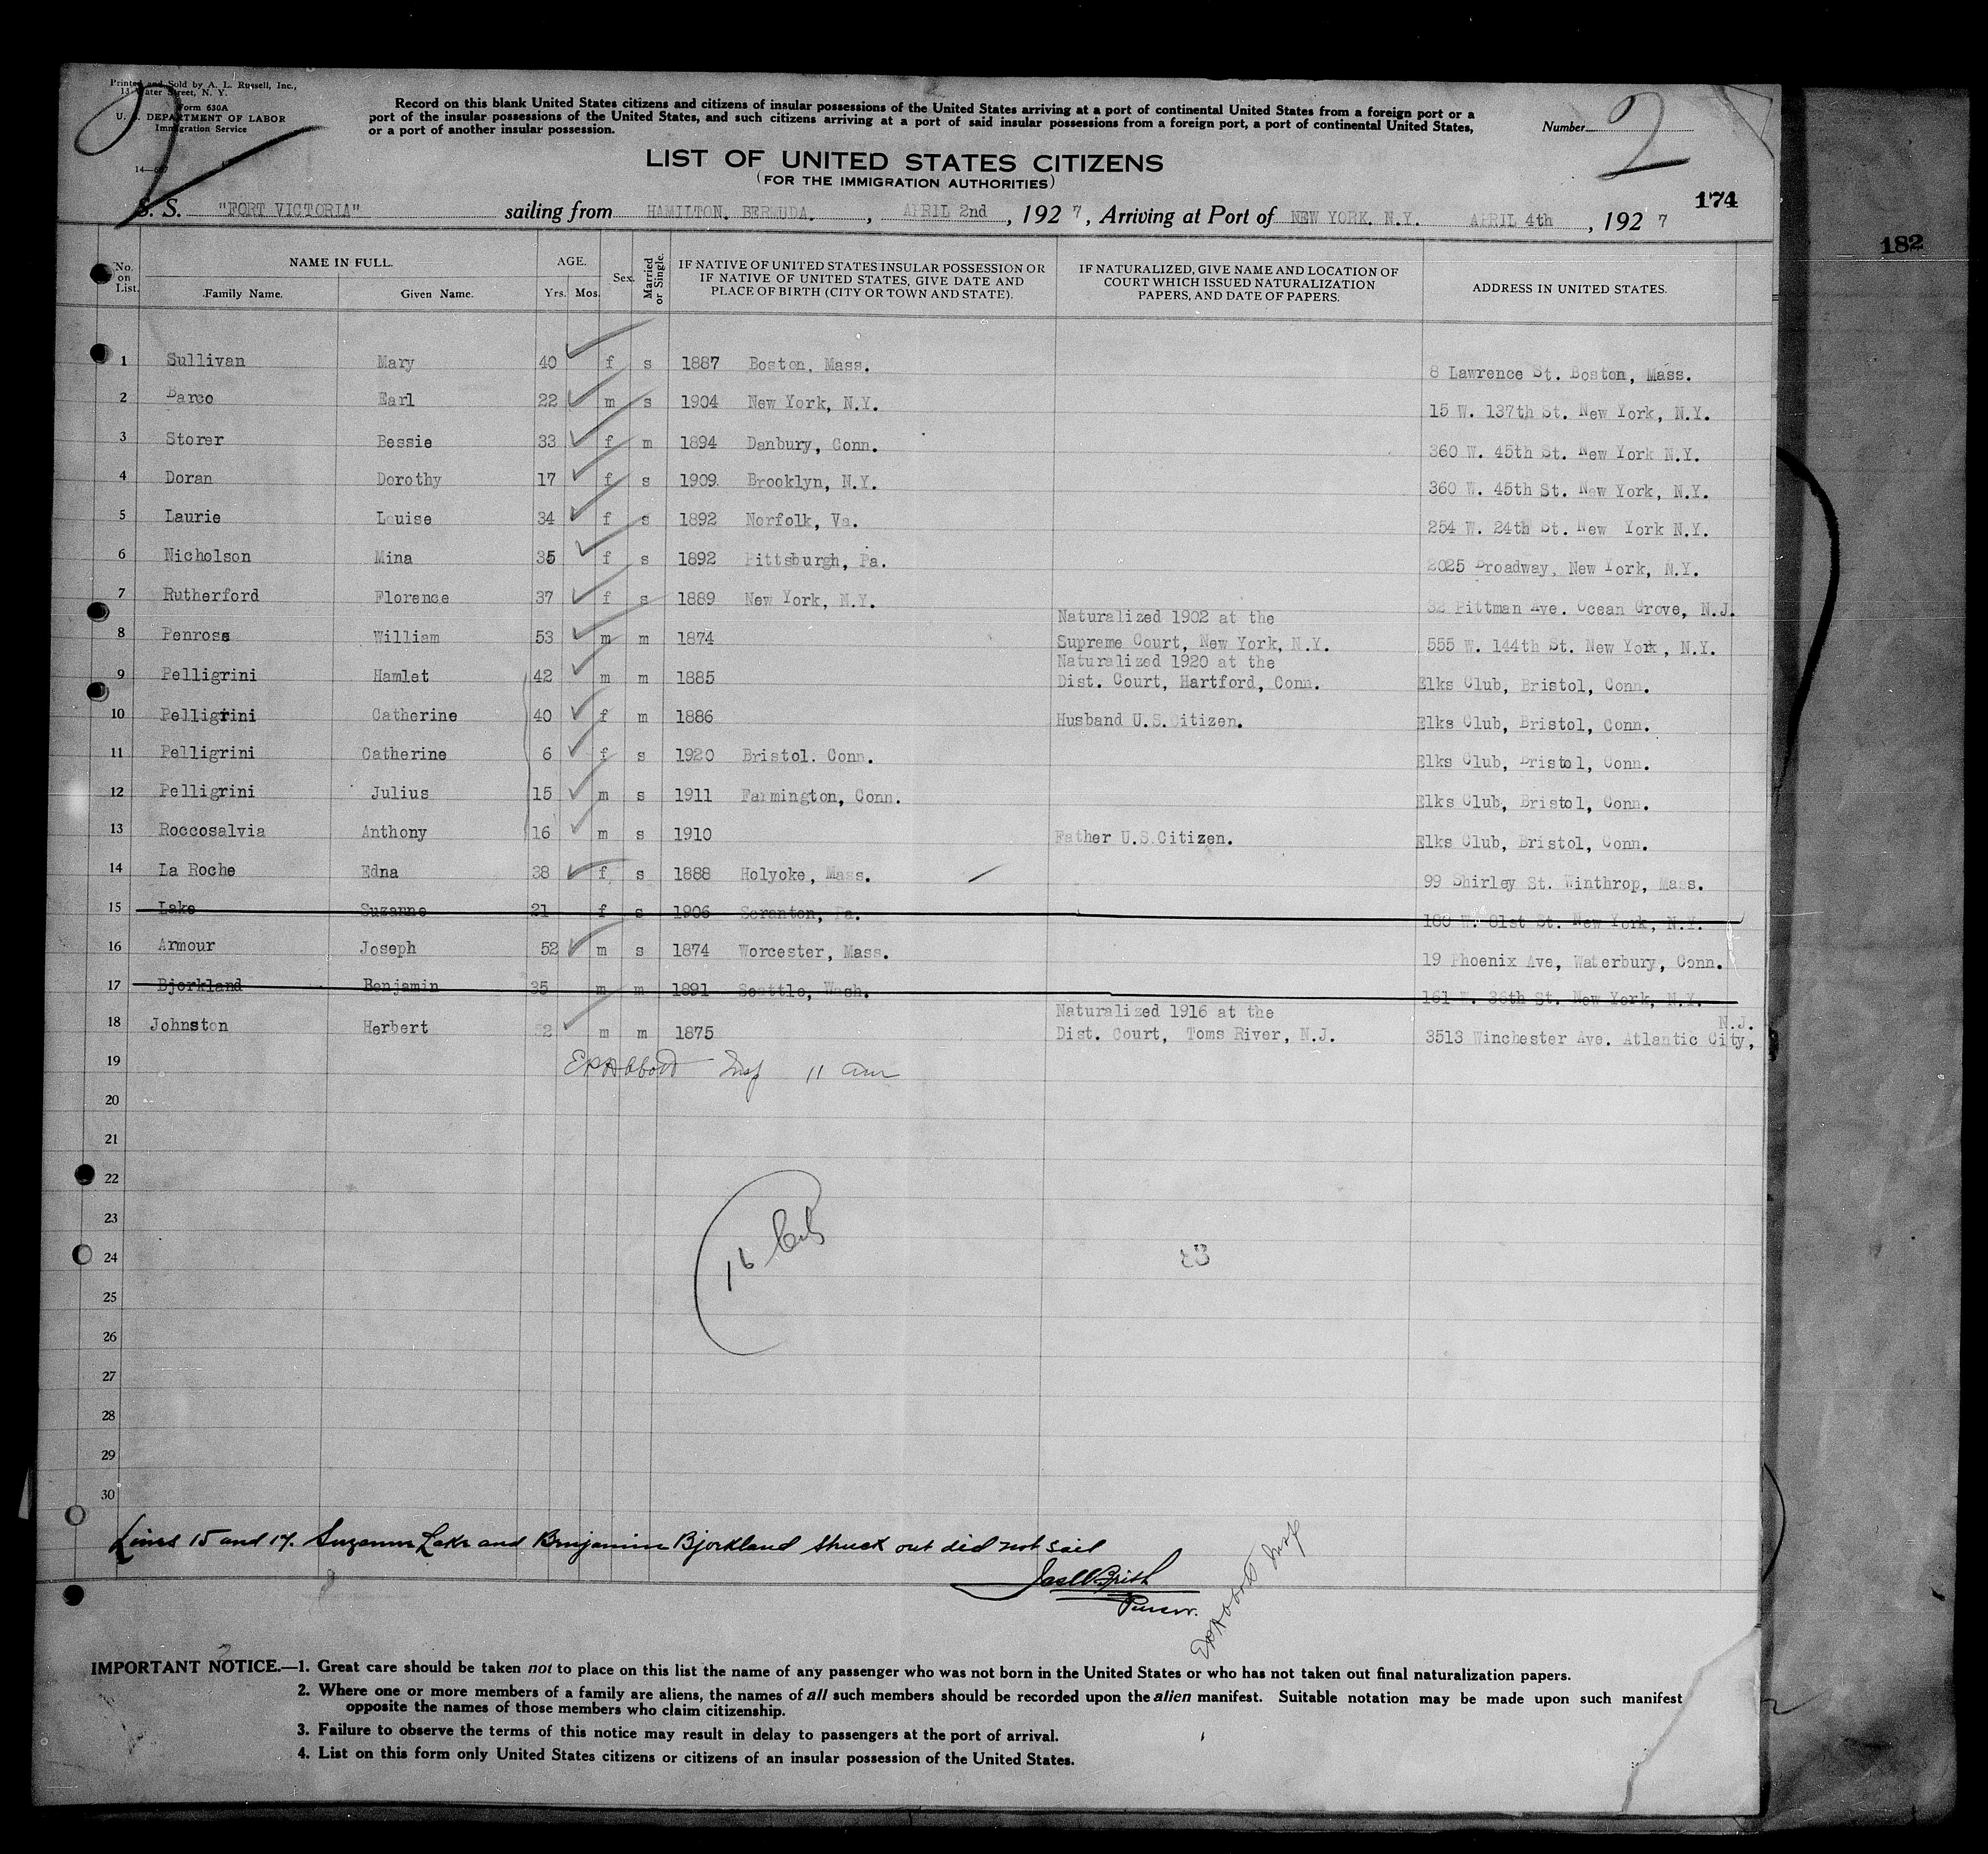 Printed and Sold by A. L. Russell, Inc.,
13 Water Street, N. Y.
Form 630A
U. S. DEPARTMENT OF LABOR
Immigration Service
2
Record on this blank United States citizens and citizens of insular possessions of the United States arriving at a port of continental United States from a foreign port or a
port of the insular possessions of the United States, and such citizens arriving at a port of said insular possessions from a foreign port, a port of continental United States,
or a port of another insular possession.
Number 2
LIST OF UNITED STATES CITIZENS
(FOR THE IMMIGRATION AUTHORITIES)
174
182
S. S. "FORT VICTORIA" sailing from HAMILTON. BERMUDA. , APRIL 2nd , 1927, Arriving at Port of NEW YORK. N.Y. APRIL 4th , 1927
No. on List. NAME IN FULL. Family Name. Given Name. AGE. Yrs. Mos. Sex. Married or Single. IF NATIVE OF UNITED STATES INSULAR POSSESSION OR IF NATIVE OF UNITED STATES, GIVE DATE AND PLACE OF BIRTH (CITY OR TOWN AND STATE). IF NATURALIZED, GIVE NAME AND LOCATION OF COURT WHICH ISSUED NATURALIZATION PAPERS, AND DATE OF PAPERS. ADDRESS IN UNITED STATES.
1 Sullivan Mary 40 f s 1887 Boston, Mass. 8 Lawrence St. Boston, Mass.
2 Barco Earl 22 m s 1904 New York, N.Y. 15 W. 137th St. New York, N.Y.
3 Storer Bessie 33 f m 1894 Danbury, Conn. 360 W. 45th St. New York N.Y.
4 Doran Dorothy 17 f s 1909 Brooklyn, N.Y. 360 W. 45th St. New York, N.Y.
5 Laurie Louise 34 f s 1892 Norfolk, Va. 254 W. 24th St. New York N.Y.
6 Nicholson Mina 35 f s 1892 Pittsburgh, Pa. 2025 Broadway, New York, N.Y.
7 Rutherford Florence 37 f s 1889 New York, N.Y. 32 Pittman Ave. Ocean Grove, N.J.
8 Penrose William 53 m m 1874 Naturalized 1902 at the Supreme Court, New York, N.Y. 555 W. 144th St. New York, N.Y.
9 Pelligrini Hamlet 42 m m 1885 Naturalized 1920 at the Dist. Court, Hartford, Conn. Elks Club, Bristol, Conn.
10 Pelligrini Catherine 40 f m 1886 Husband U.S.Citizen. Elks Club, Bristol, Conn.
11 Pelligrini Catherine 6 f s 1920 Bristol. Conn. Elks Club, Bristol, Conn.
12 Pelligrini Julius 15 m s 1911 Farmington, Conn. Elks Club, Bristol, Conn.
13 Roccosalvia Anthony 16 m s 1910 Father U.S.Citizen. Elks Club, Bristol, Conn.
14 La Roche Edna 38 f s 1888 Holyoke, Mass. 99 Shirley St. Winthrop, Mass.
15 Lake Suzanne 21 f s 1906 Scranton, Pa. 100 W. 81st St. New York, N.Y.
16 Armour Joseph 52 m s 1874 Worcester, Mass. 19 Phoenix Ave, Waterbury, Conn.
17 Bjorkland Benjamin 35 m m 1891 Seattle, Wash. 161 W. 36th St. New York, N.Y.
18 Johnston Herbert 52 m m 1875 Naturalized 1916 at the Dist. Court, Toms River, N.J. 3513 Winchester Ave. Atlantic City, N.J.
19 Abbott Insp 11 am
20
21
22
23
24 16
25
26
27
28
29
30
Lines 15 and 17. Suzanne Lake and Benjamin Bjorkland struck out did not sail
Purser.
Abbott Insp
IMPORTANT NOTICE.—1. Great care should be taken not to place on this list the name of any passenger who was not born in the United States or who has not taken out final naturalization papers.
2. Where one or more members of a family are aliens, the names of all such members should be recorded upon the alien manifest. Suitable notation may be made upon such manifest
opposite the names of those members who claim citizenship.
3. Failure to observe the terms of this notice may result in delay to passengers at the port of arrival.
4. List on this form only United States citizens or citizens of an insular possession of the United States.